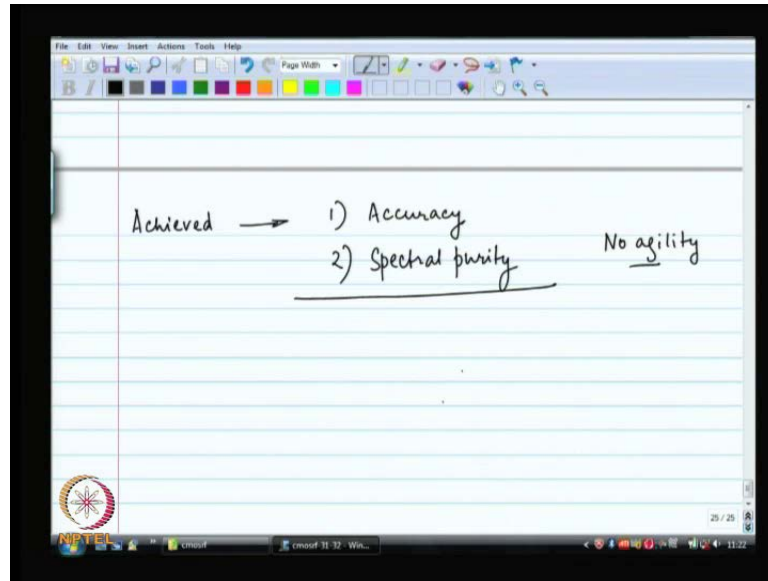 File Edit View Insert Actions Tools Help
Page Width
B I
Achieved → 1) Accuracy
2) Spectral purity
No agility
25 / 25
NPTEL
cmosrf
cmosrf-31-32 - Win...
11:22